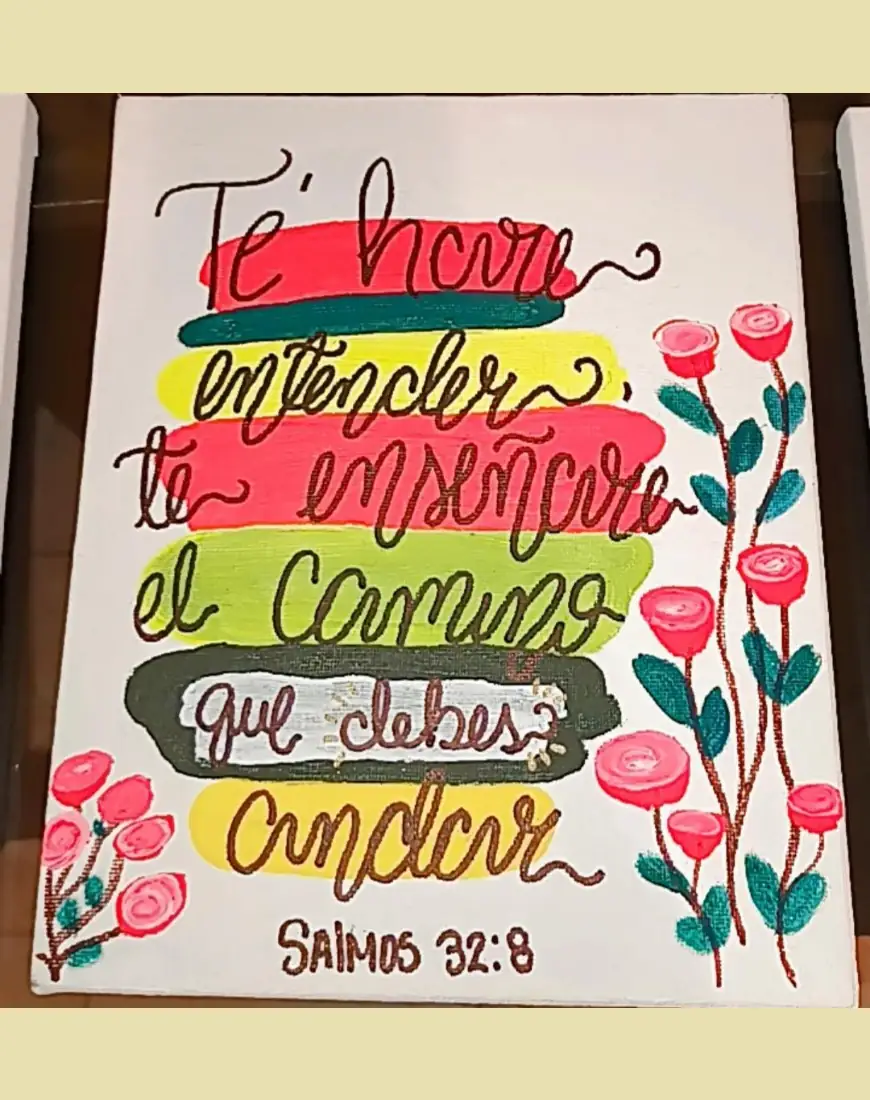 Té hare
entender,
te enseñare
el camino
que debes
andar
SAlMOS 32:8